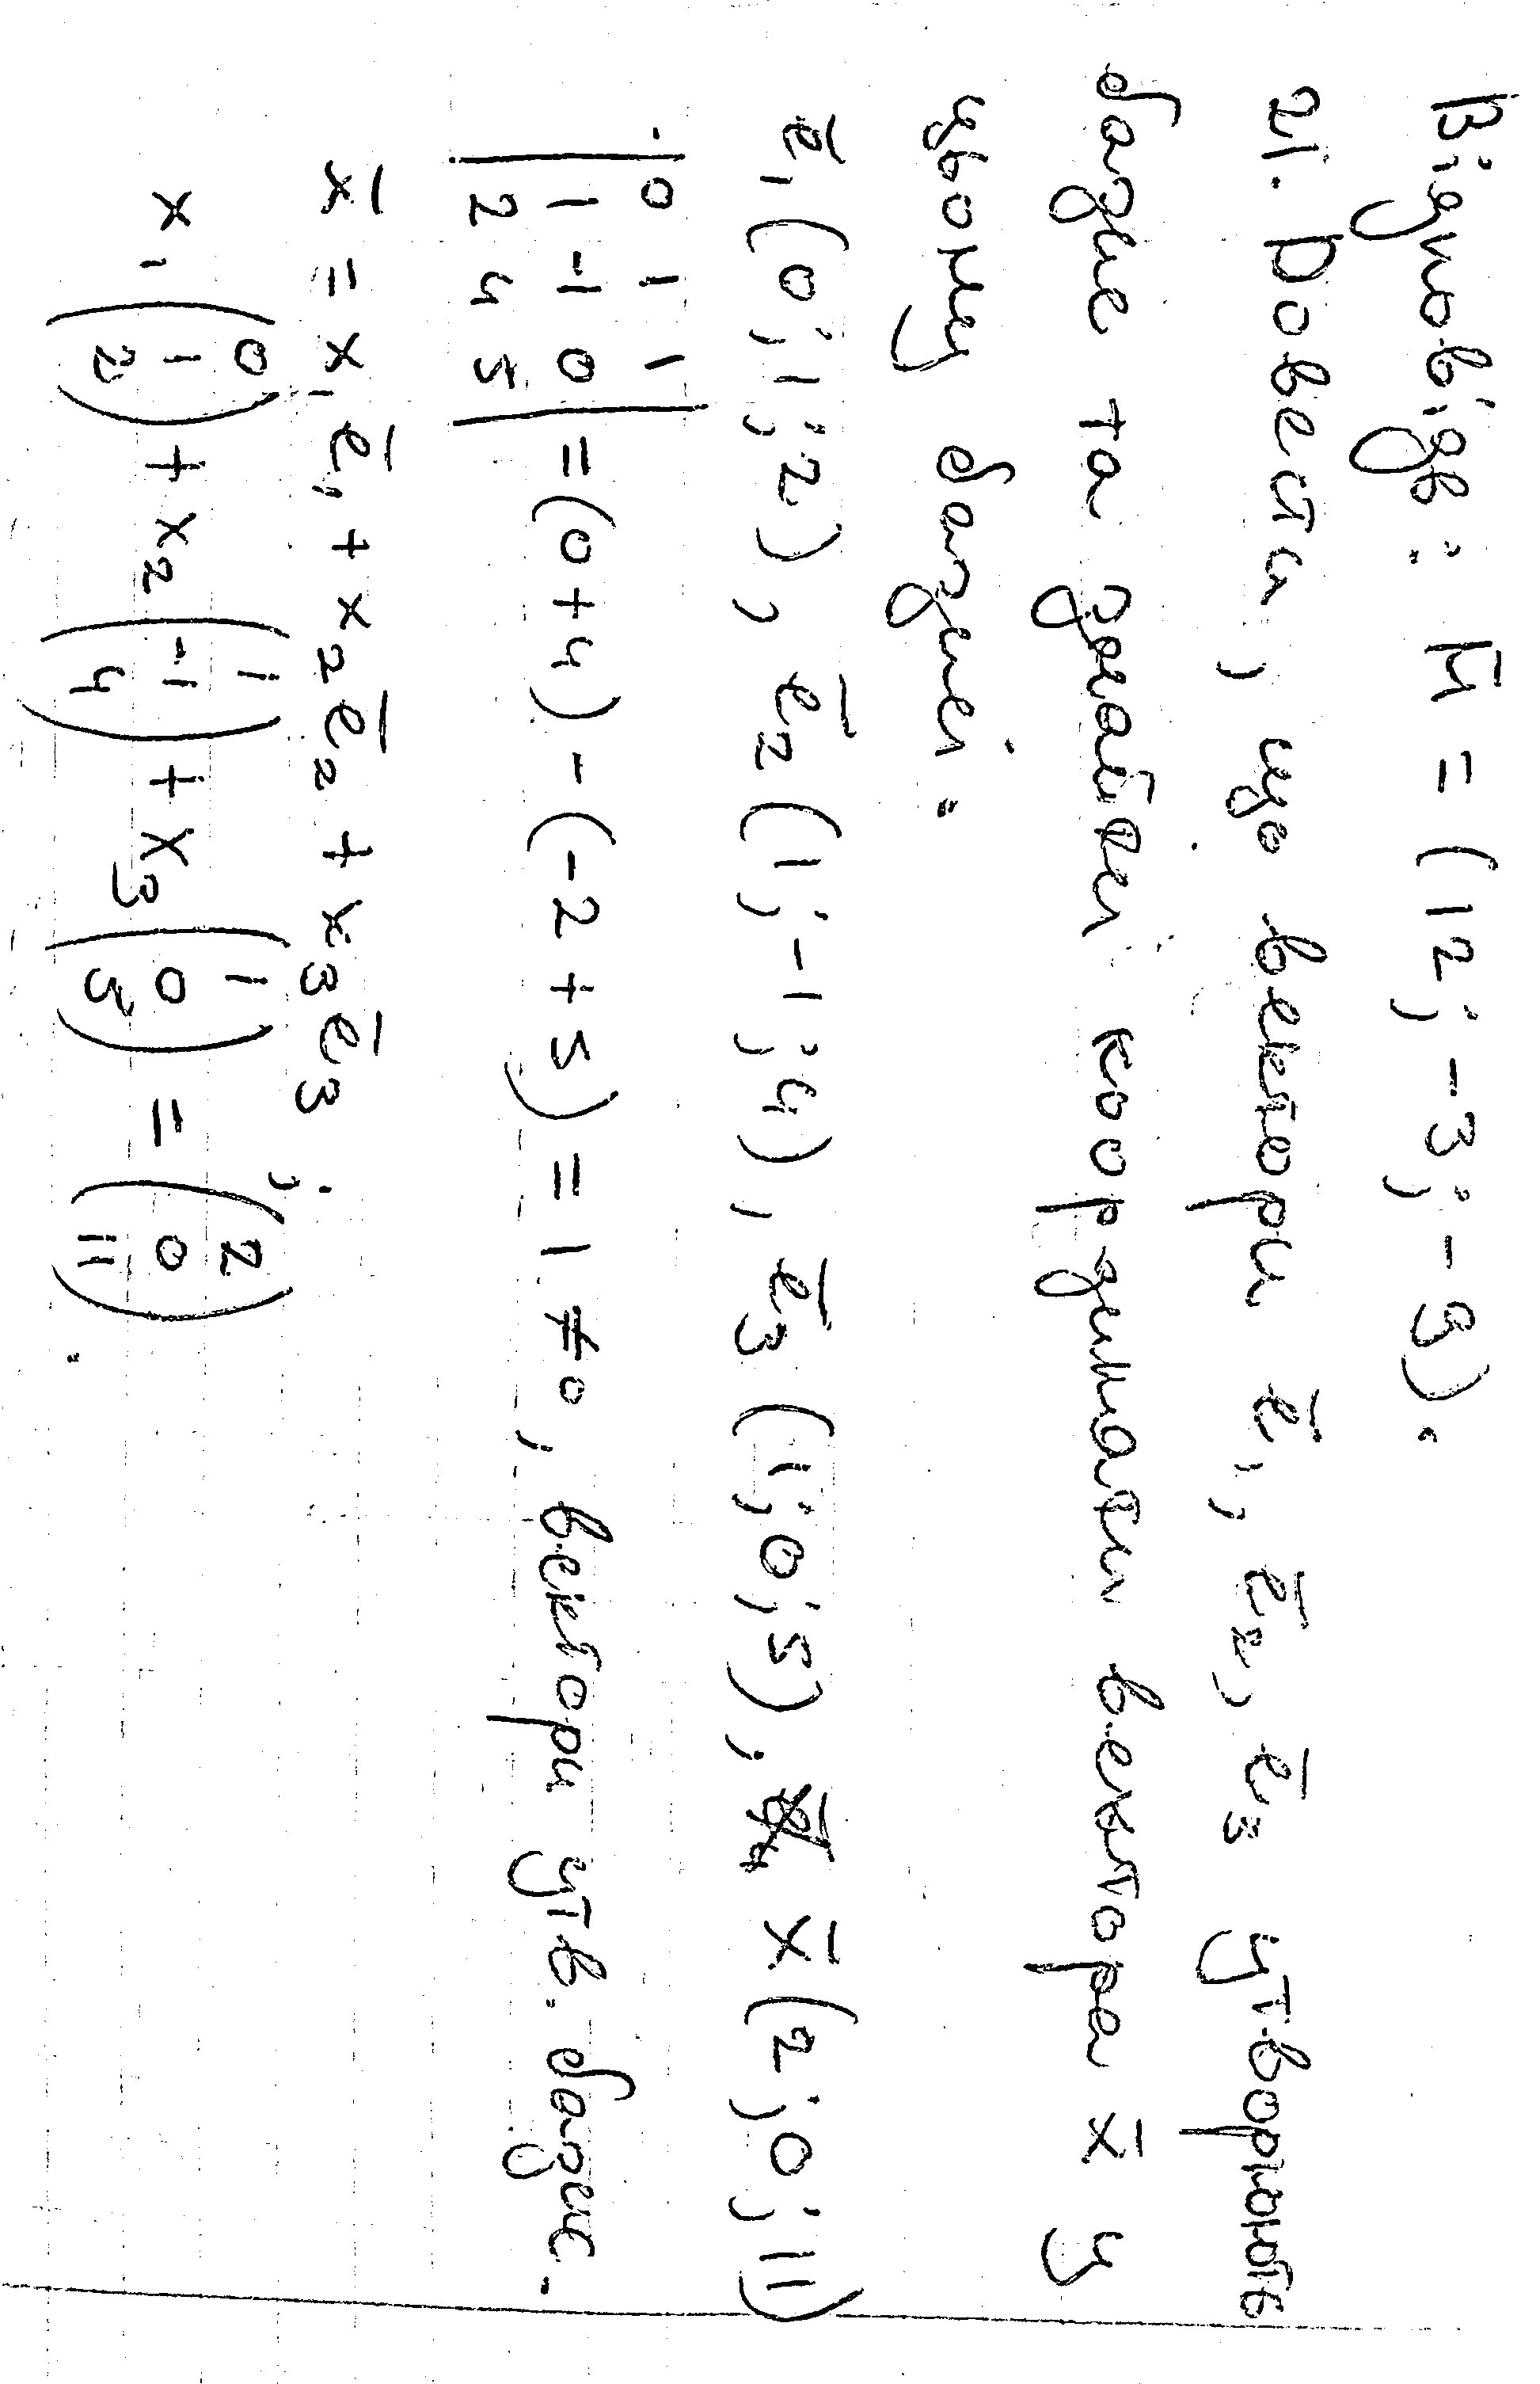 Відповідь: M̄ = (12; -3; -9).
21. Довести, що вектори ē₁, ē₂, ē₃ утворюють
базис та знайти координати вектора x̄ у
цьому базисі:
ē₁(0; 1; 2), ē₂(1; -1; 4), ē₃(1; 0; 5), x̄(2; 0; 11)
|0 1 1|
|1 -1 0| = (0+4) - (-2+5) = 1 ≠ 0, вектори утв. базис.
|2 4 5|
x̄ = x₁ē₁ + x₂ē₂ + x₃ē₃;
x₁(0 1 2) + x₂(1 -1 4) + x₃(1 0 5) = (2 0 11).